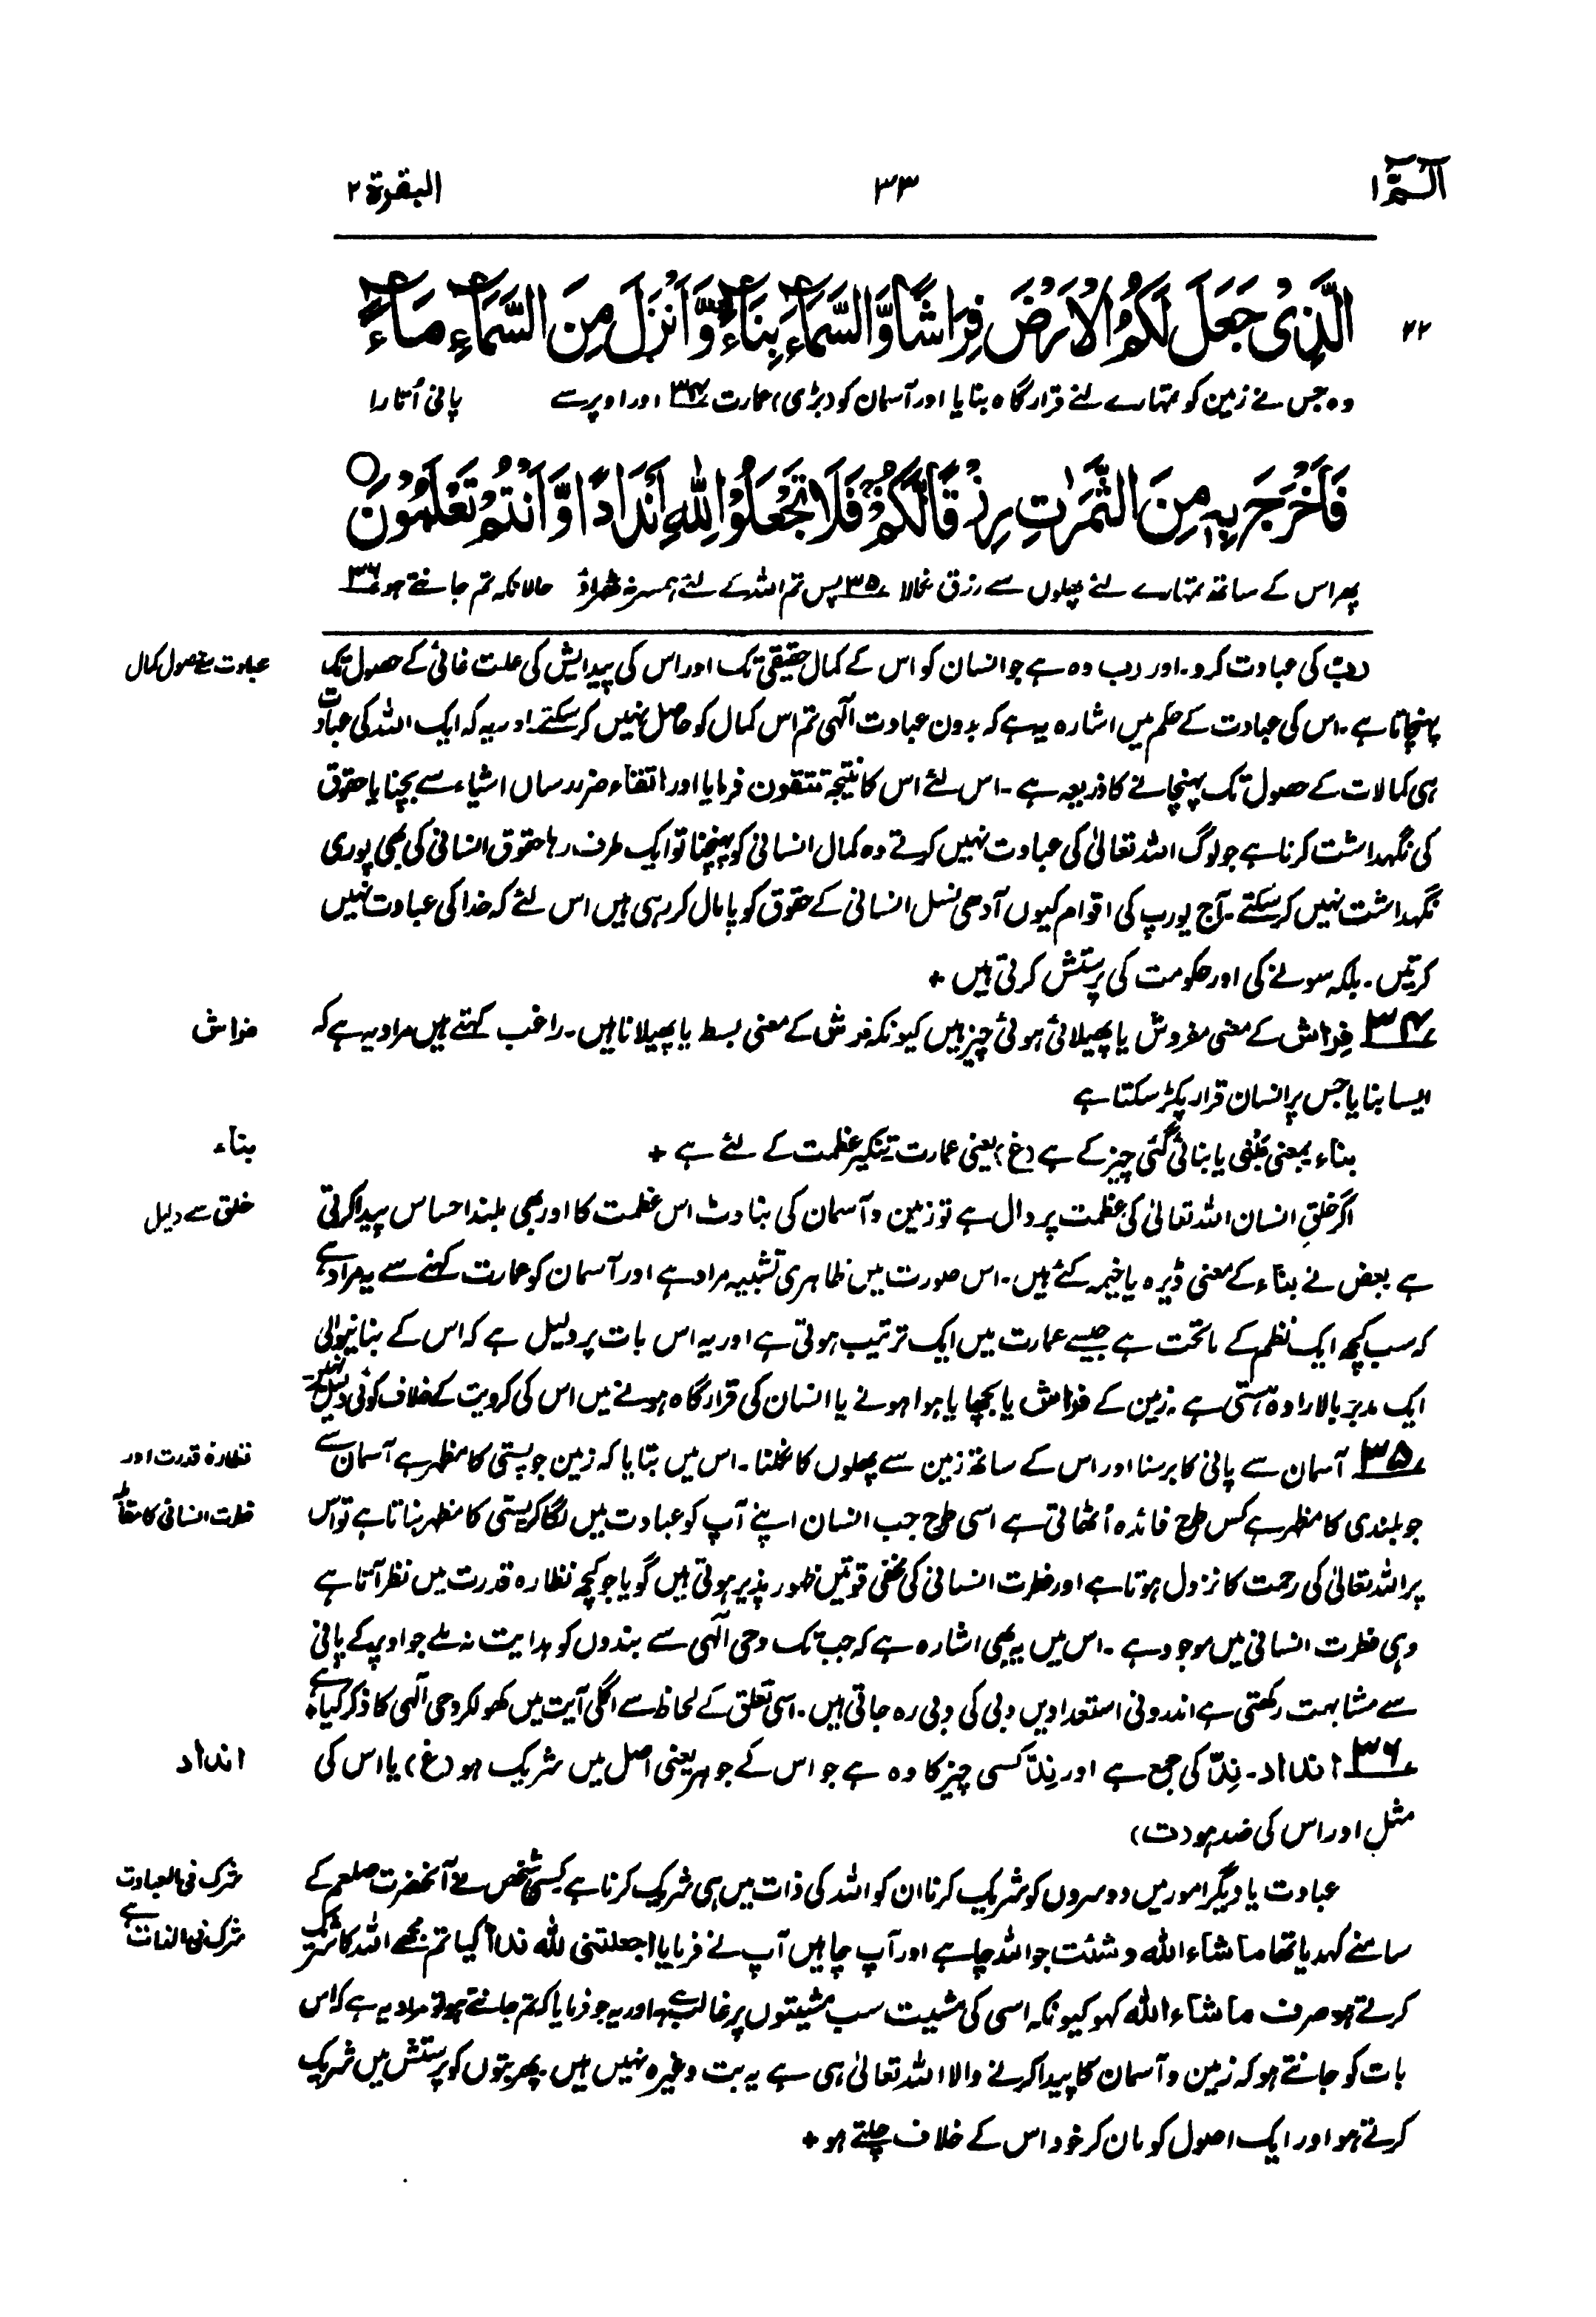 الٓمّٓ ۱
۳۳
البقرة ۲
۲۲
الَّذِیْ جَعَلَ لَكُمُ الْاَرْضَ فِرَاشًا وَّالسَّمَآءَ بِنَآءً ۪ وَّاَنْزَلَ مِنَ السَّمَآءِ مَآءً
وہ جس نے زمین کو تمہارے لئے قرارگاہ بنایا اور آسمان کو (بڑی) عمارت ۳۴ اور اوپر سے پانی اُتارا
فَاَخْرَجَ بِهٖ مِنَ الثَّمَرٰتِ رِزْقًا لَّكُمْ ۚ فَلَا تَجْعَلُوْا لِلّٰهِ اَنْدَادًا وَّاَنْتُمْ تَعْلَمُوْنَ ○
پھر اس کے ساتھ تمہارے لئے پھلوں سے رزق نکالا ۳۵ پس تم اللہ کے لئے ہمسر نہ ٹھہراؤ حالانکہ تم جانتے ہو ۳۶
عبادت سے حصول کمال
ربّ کی عبادت کرو۔ اور رب وہ ہے جو انسان کو اس کے کمال حقیقی تک اور اس کی پیدایش کی علت غائی کے حصول تک
پہنچاتا ہے۔ اس کی عبادت کے حکم میں اشارہ یہ ہے کہ بدون عبادت الٰہی تم اس کمال کو حاصل نہیں کر سکتے۔ اور یہ کہ ایک اللہ کی عبادت
ہی کمالات کے حصول تک پہنچانے کا ذریعہ ہے۔ اس لئے اس کا نتیجہ تتقون فرمایا اور اتقاء ضرر رساں اشیاء سے بچنا یا حقوق
کی نگہداشت کرنا ہے جو لوگ اللہ تعالیٰ کی عبادت نہیں کرتے وہ کمال انسانی کو پہنچنا تو ایک طرف رہا حقوق انسانی کی بھی پوری
نگہداشت نہیں کر سکتے۔ آج یورپ کی اقوام کیوں آدھی نسل انسانی کے حقوق کو پامال کر رہی ہیں اس لئے کہ خدا کی عبادت نہیں
کرتیں۔ بلکہ سونے کی اور حکومت کی پرستش کرتی ہیں +
فراش
۳۴ فِرَاش کے معنی مفروش یا پھیلائی ہوئی چیز ہیں کیونکہ فرش کے معنی بسط یا پھیلانا ہیں۔ راغب کہتے ہیں مراد یہ ہے کہ
ایسا بنایا جس پر انسان قرار پکڑ سکتا ہے
بناء
بناء بمعنی مَبْنِی یا بنائی گئی چیز کے ہے (غ) یعنی عمارت تنکیر عظمت کے لئے ہے +
خلق سے دلیل
اگر خلقِ انسان اللہ تعالیٰ کی عظمت پر دال ہے تو زمین و آسمان کی بناوٹ اس عظمت کا اور بھی بلند احساس پیدا کرتی
ہے بعض نے بناء کے معنی ڈیرہ یا خیمہ کئے ہیں۔ اس صورت میں ظاہری تشبیہ مراد ہے اور آسمان کو عمارت کہنے سے یہ مراد ہے
کہ سب کچھ ایک نظم کے ماتحت ہے جیسے عمارت میں ایک ترتیب ہوتی ہے اور یہ اس بات پر دلیل ہے کہ اس کے بنانیوالی
ایک مدبّر بالارادہ ہستی ہے۔ زمین کے فراش یا بچھا یا ہوا ہونے یا انسان کی قرارگاہ ہونے میں اس کی کرویت کے خلاف کوئی دلیل نہیں۔
نظارہ قدرت اور
فطرت انسانی کا مقابلہ
۳۵ آسمان سے پانی کا برسنا اور اس کے ساتھ زمین سے پھلوں کا نکلنا۔ اس میں بتایا کہ زمین جو پستی کا مظہر ہے آسمان سے
جو بلندی کا مظہر ہے کس طرح فائدہ اُٹھاتی ہے اسی طرح جب انسان اپنے آپ کو عبادت میں لگا کر پستی کا مظہر بناتا ہے تو اس
پر اللہ تعالیٰ کی رحمت کا نزول ہوتا ہے اور فطرت انسانی کی مخفی قوتیں ظہور پذیر ہوتی ہیں گویا جو کچھ نظارہ قدرت میں نظر آتا ہے
وہی فطرت انسانی میں موجود ہے۔ اس میں یہ بھی اشارہ ہے کہ جب تک وحی الٰہی سے بندوں کو ہدایت نہ ملے جو اوپر کے پانی
سے مشابہت رکھتی ہے اندرونی استعدادیں دبی کی دبی رہ جاتی ہیں۔ اسی تعلق کے لحاظ سے اگلی آیت میں کھول کر وحی الٰہی کا ذکر کیا ہے۔
انداد
۳۶ انداد۔ نِدّ کی جمع ہے اور نِدّ کسی چیز کا وہ ہے جو اس کے جوہر یعنی اصل میں شریک ہو (غ) یا اس کی
مثل اور اس کی ضد ہو (ت)
شرک فی العبادت
شرک فی الذات ہے
عبادت یا دیگر امور میں دوسروں کو شریک کرنا ان کو اللہ کی ذات میں ہی شریک کرنا ہے کسی شخص نے آنحضرت صلعم کے
سامنے کہدیا تھا ما شاء اللہ و شئت جو اللہ چاہے اور آپ چاہیں آپ نے فرمایا اجعلتنی للہ نداً کیا تم مجھے اللہ کا شریک
کرتے ہو صرف ما شاء اللہ کہو کیونکہ اسی کی مشیت سب مشیتوں پر غالب ہے اور یہ جو فرمایا کہ تم جانتے ہو تو مراد یہ ہے کہ اس
بات کو جانتے ہو کہ زمین و آسمان کا پیدا کرنے والا اللہ تعالیٰ ہی ہے یہ بت وغیرہ نہیں ہیں۔ پھر بتوں کو پرستش میں شریک
کرتے ہو اور ایک اصول کو مان کر خود اس کے خلاف چلتے ہو +